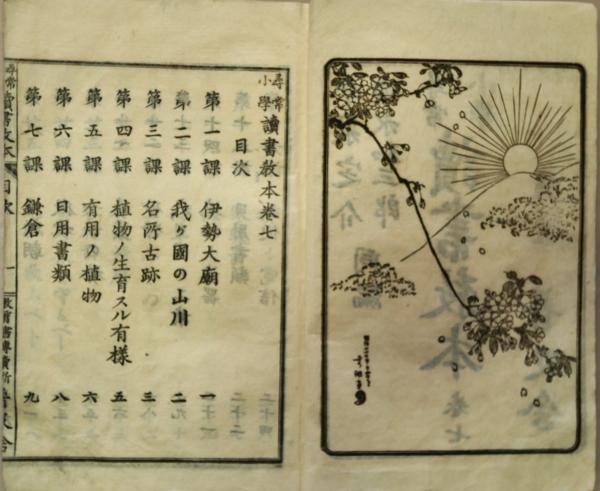 尋常小學讀書教本卷七
目次
第一課 伊勢大廟 一
第二課 我ガ國の山川 二
第三課 名所古跡 三
第四課 植物ノ生育スル有樣 五
第五課 有用ノ植物 六
第六課 日用書類 八
第七課 鎌倉 九
尋常讀書教本 目次 一